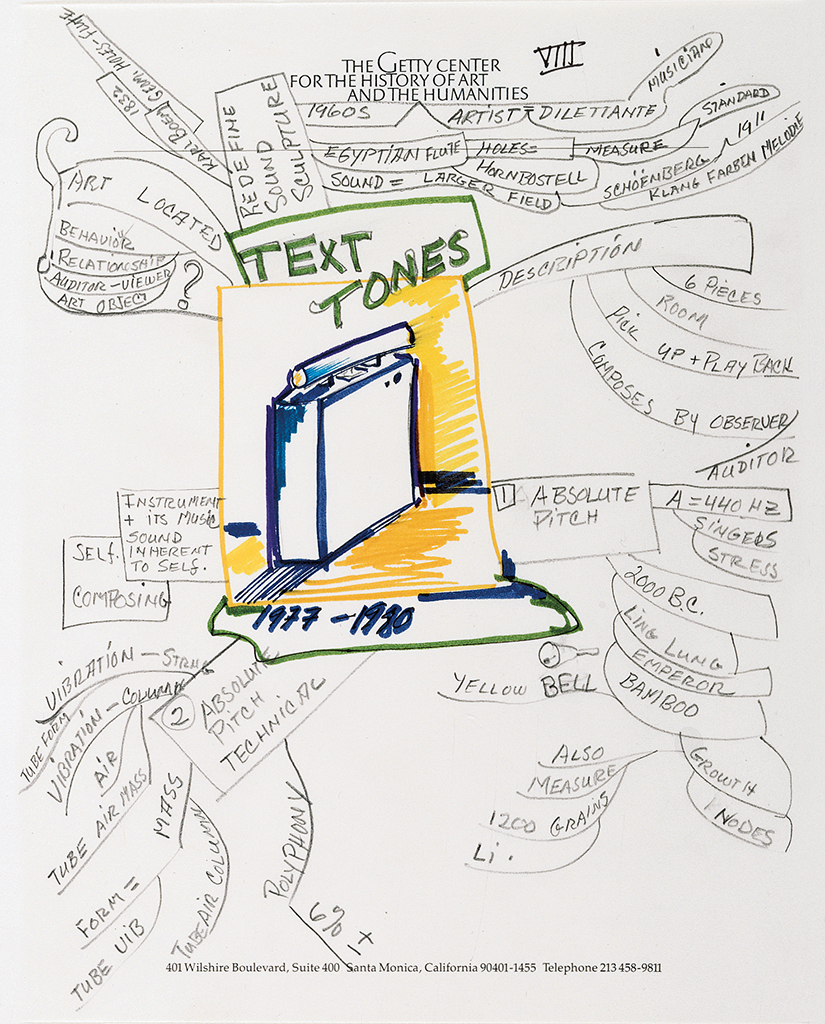 THE GETTY CENTER
FOR THE HISTORY OF ART
AND THE HUMANITIES
VIII
GEMI. HOLES - FLUTE
1832
KARL DOEN
REDEFINE
SOUND
SCULPTURE
1960S
ARTIST = DILETTANTE
MUSICIAN
EGYPTIAN FLUTE
HOLES =
MEASURE
STANDARD
HORNBOSTELL
SOUND = LARGER FIELD
SCHÖENBERG
1911
KLANG FARBEN MELODIE
ART LOCATED
BEHAVIOR
RELATIONSHIP
AUDITOR - VIEWER
ART OBJECT
?
TEXT
TONES
DESCRIPTION
6 PIECES
ROOM
PICK UP + PLAY BACK
COMPOSES BY OBSERVER
AUDITOR
INSTRUMENT
+ ITS MUSIC
SOUND
INHERENT
TO SELF.
SELF.
COMPOSING
1 ABSOLUTE
PITCH
A = 440 HZ
SINGERS
STRESS
2000 B.C.
LING LUNG
EMPEROR
BAMBOO
YELLOW BELL
GROWTH
NODES
ALSO
MEASURE
1200 GRAINS
Li.
1977 - 1980
2 ABSOLUTE
PITCH
TECHNICAL
VIBRATION - STRNG
TUBE FORM
VIBRATION - COLUMN
AIR
TUBE AIR MASS
MASS
FORM =
TUBE VIB
TUBE AIR COLUMN
POLYPHONY
6% ±
401 Wilshire Boulevard, Suite 400 Santa Monica, California 90401-1455 Telephone 213 458-9811